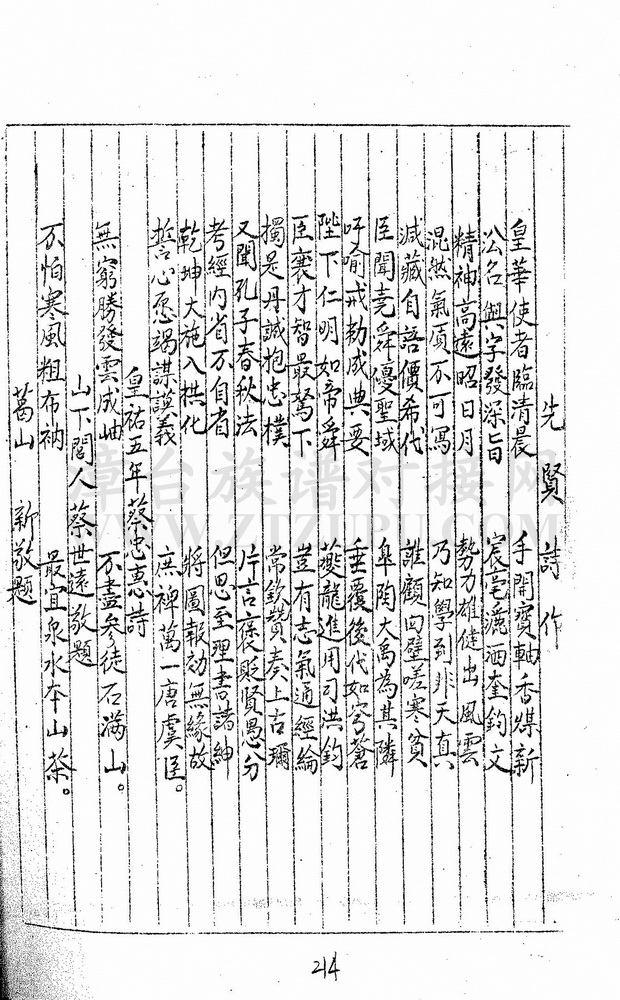 先賢詩作
皇華使者臨清晨 手開寶軸香煤新
公名與字發深旨 宸毫灑洒奎鈞文
精神高遠昭日月 勢力雄健出風雲
混然氣質不可寫 乃知學到非天真
减藏自語價希代 誰顧四壁嗟寒貧
臣聞堯舜優聖域 臯陶大禹為其隣
吁喻戒勑成典要 垂覆後代如穹蒼
陛下仁明如帝舜 夔龍進用司洪鈞
臣襄才智最駑下 豈有志氣通經綸
獨是丹誠抱忠樸 常欽贊奏上古珊
又聞孔子春秋法 片言褒貶賢愚分
考經內省不自省 但思至理書諸紳
乾坤大施入拱化 將圖報効無緣故
誓心愿竭謀謨義 庶裨萬一唐虞臣。
皇祐五年蔡忠惠詩
無窮勝發雲成岫 不盡參徒石滿山。
山下閣人蔡世遠敬題
不怕寒風粗布衲 最宜泉水本山茶。
葛山 新敬題
214
漳台族谱对接网
WWW.ZTZUPU.COM